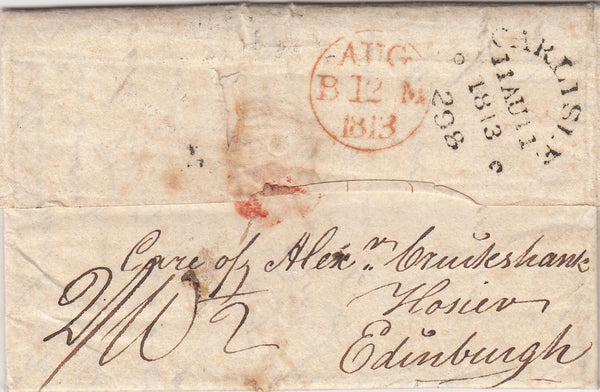 AUG
B 12 M
1813
CARLISLE
11 AU 11
1813
298
Care of Alexr. Cruickshank
Hosier
Edinburgh